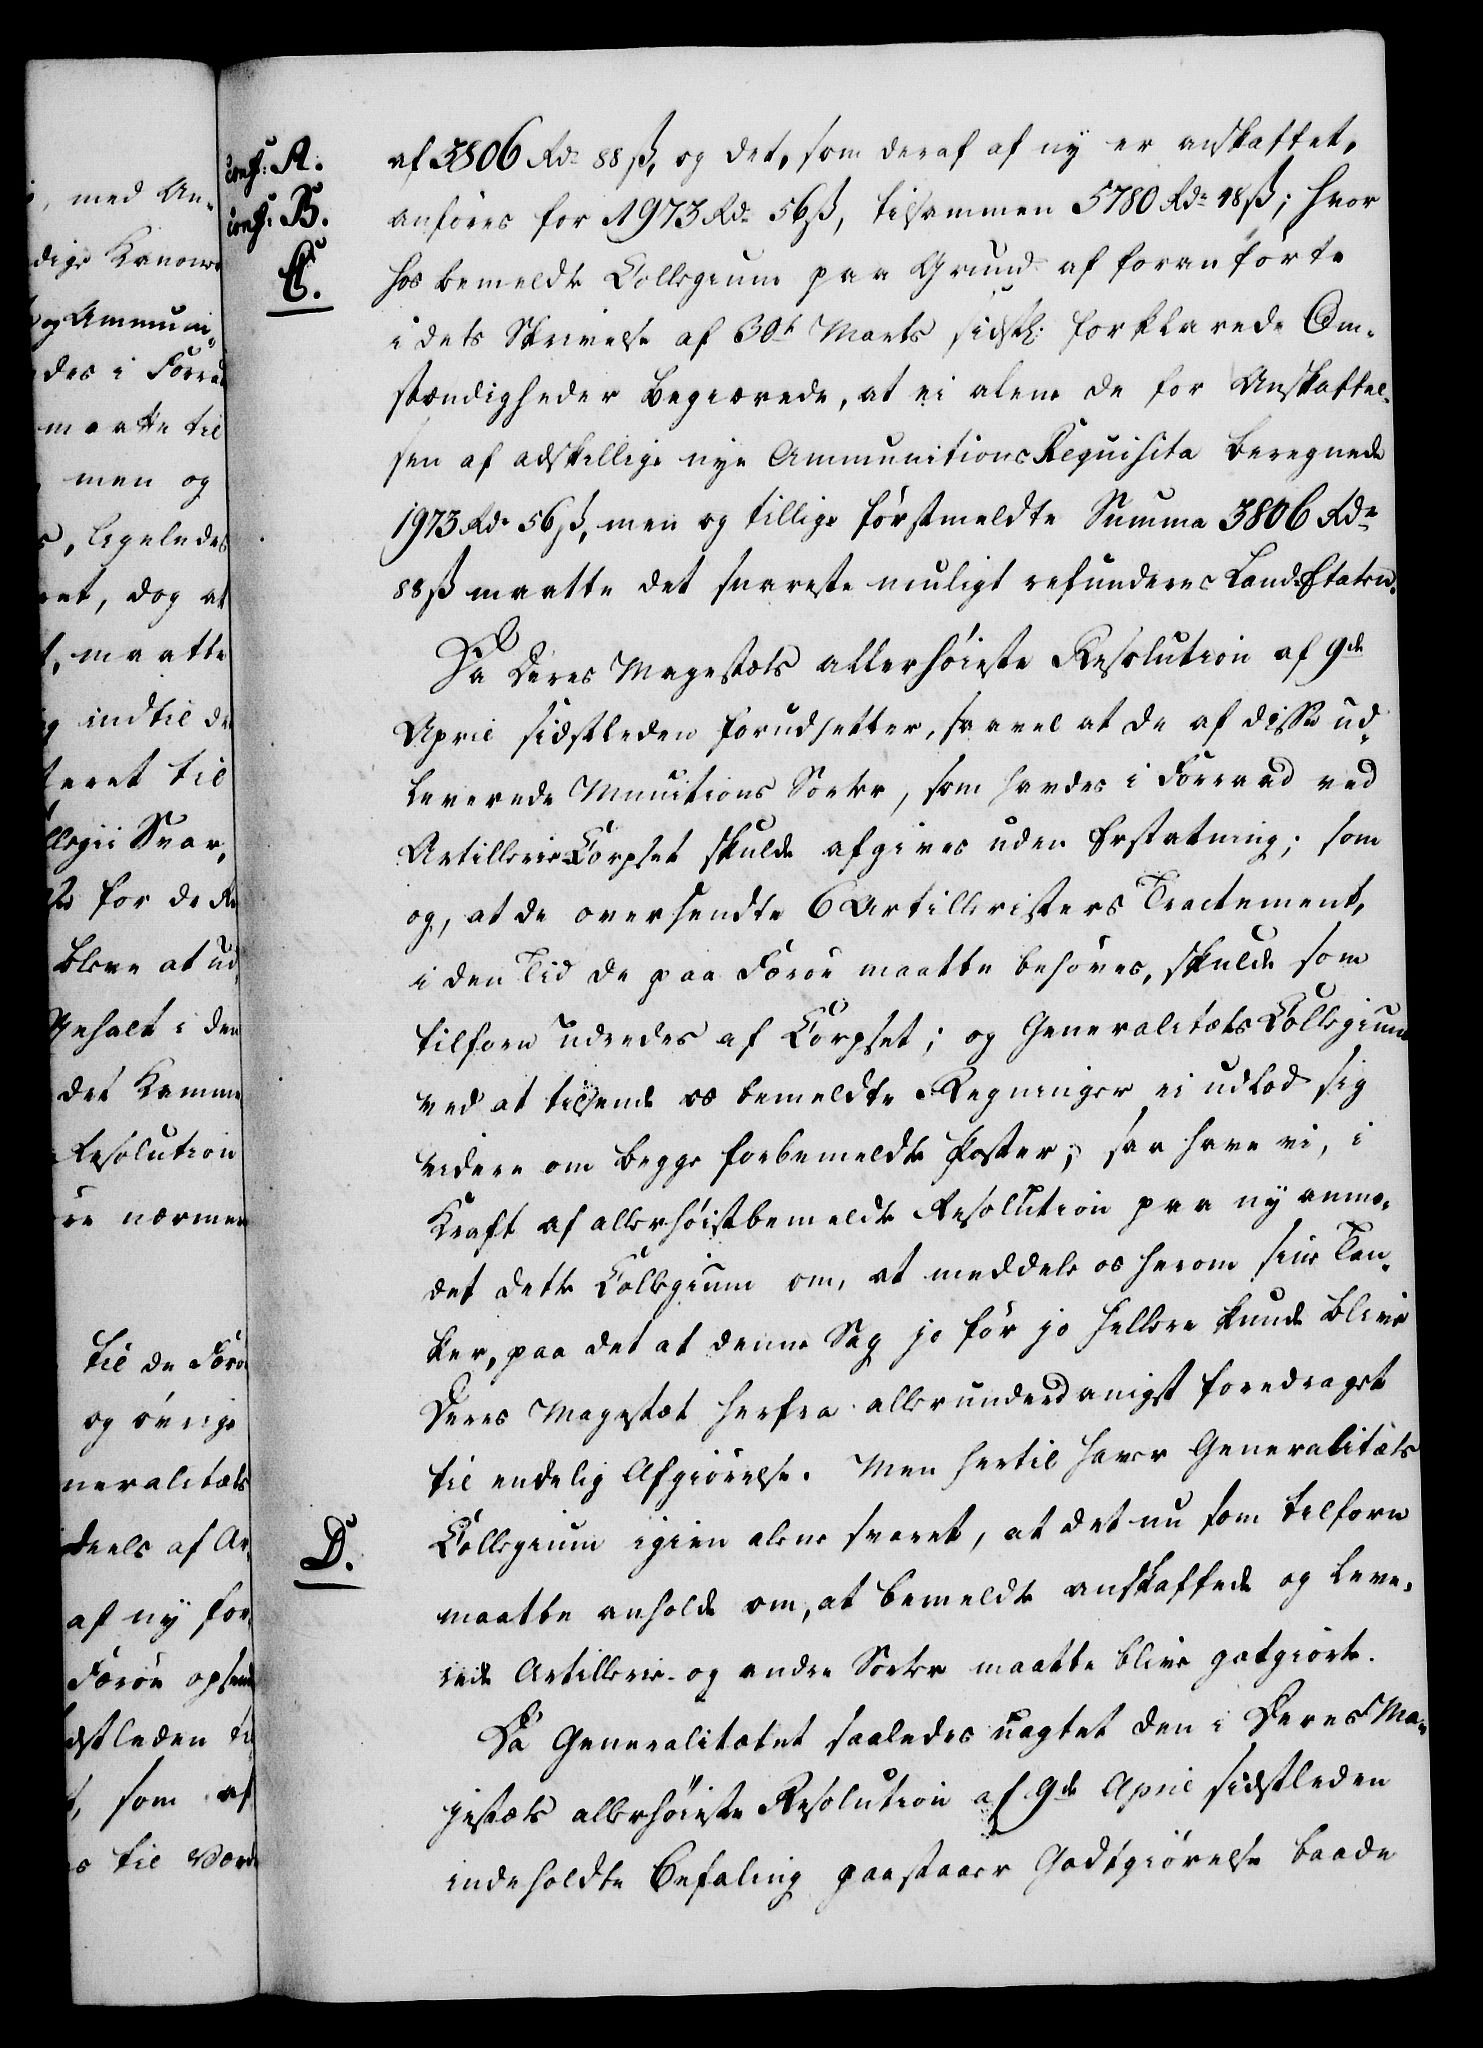 conf: A.
conf: B.
C.
af 3806 Rd. 88 ß, og det, som deraf af ny er anskaffet,
anføres for 1973 Rd. 56 ß, tilsammen 5780 Rd. 48 ß; hvor
hos bemeldte Collegium paa Grund af foranførte
i dets Skrivelse af 30t Marts sidstl: forklarede Om-
stændigheder begiærede, at ei alene de for Anskaffel-
sen af adskillige nye Ammunitions Requisita beregnede
1973 Rd. 56 ß, men og tillige førstmeldte Summa 3806 Rd.
88 ß maatte det snareste muligt refunderes Land-Etaten.
Da Deres Mayestæts allerhøieste Resolution af 9de
April sidstleden forudsetter, saavel at de af disse ud-
leverede Munitions Sorter, som havdes i Forraad ved
Artillerie-Corpset skulde afgives uden Erstatning; som
og, at de oversendte 6 Artilleristers Tractement,
i den Tid de paa Færøe maatte behøves, skulde som
tilforn udredes af Corpset; og Generalitæts Collegium
ved at tilsende os bemeldte Regninger ei udlod sig
videre om begge forbemeldte Poster; saa have vi, i
Kraft af allerhøistbemeldte Resolution paa ny anmo-
det dette Collegium om, at meddele os herom sine Tan-
ker, paa det at denne Sag jo før jo hellere kunde blive
Deres Mayestæt herfra allerunderdanigst foredraget
til endelig Afgiørelse. Men hertil haver Generalitæts
D.
Collegium igien alene svaret, at det nu som tilforn
maatte anholde om, at bemeldte anskaffede og leve-
rede Artillerie- og andre Sorter maatte blive godtgiorte.
Da Generalitetet saaledes uagtet den i Deres Ma-
jestæts allerhøieste Resolution af 9de April sidstleden
indeholdte Befaling paastaaer Godtgiørelse baade
med An-
dige Kanoner
og Ammuni-
des i Forraad
maatte til
men og
, ligeledes
, dog at
, maatte
indtil de
til
Svar,
for de
bleve at ud
Gehalt i den
det Kammer
Resolution
nærmere
til de Færø
og øvrige
neralitæts
deels af Ar-
af ny for
Færøe opsende
dstleden
, som af
til Værd